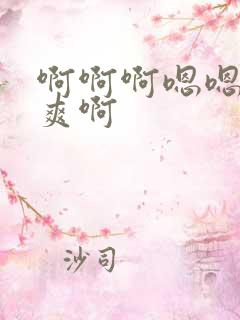 啊啊啊嗯嗯
爽啊
沙司